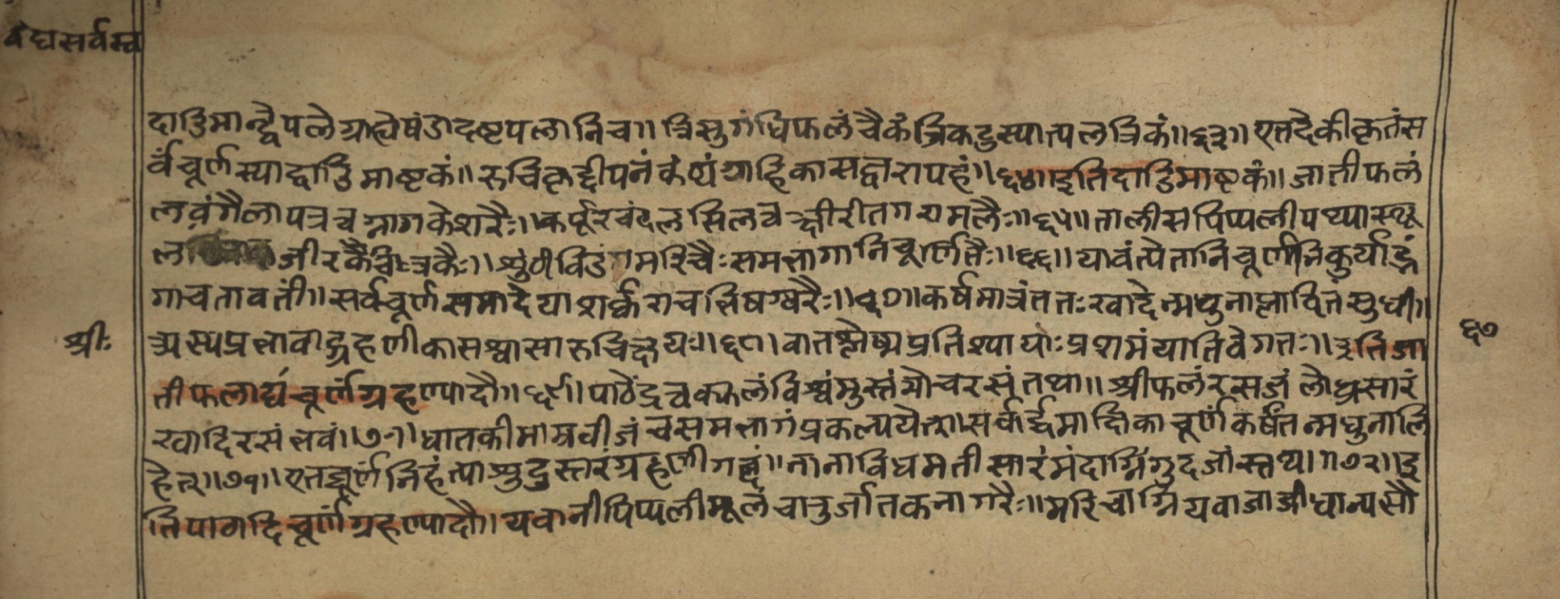 वैद्यसर्वस्व
दाडिमान्द्वैपले ग्राह्ये षंडादष्टपलानिच॥ त्रिसुगंधिफलं चैकं त्रिकटुस्यात्पलत्रिकं॥६३॥ एतदेकीकृतंस
र्वंचूर्णस्याद्दाडिमाष्टकं॥ रुचिकृद्दीपनं कंठ्यंग्राहिकासज्वरापहं॥६४॥इतिदाडिमाष्टकं॥ जातीफलं
लवंगैलापत्रत्वग्नागकेशरैः॥कर्पूरचंदलसिलत्वक्क्षीरीतगरामलैः॥६५॥तालीसपिप्पलीपथ्यास्थू
जीरकैश्चित्रकैः॥ शुंठीविडंगमरिचैःसमभागानिचूर्णितैः॥६६॥ यावंत्येतानिचूर्णानिकुर्याद्भं
गाचतावतीं॥ सर्वचूर्णसमादेयाशर्कराचभिषग्वरैः॥६७॥कर्षमात्रंततःखादेन्मधुनाप्लादितंसुधी॥
श्रीः
अस्यप्रभावाद्ग्रहणीकासश्वासारुचिक्षयः॥६८॥ वातश्लैष्मप्रतिश्यायाःप्रशमंयातिवेगतः॥ इतिजा
६७
तीफलाद्यंचूर्णंग्रहण्यादौ॥६९॥पाठेंद्रत्वक्फलंविश्वंमुस्तंमोचरसंतथा॥ श्रीफलंरसजंलोध्रसारं
खादिरसंभवं॥७०॥धातकीमाम्रबीजंचसमभागंप्रकल्पयेत्॥सर्वार्द्धमाक्षिकाचूर्णंकर्षंतन्मधुनालि
हेत्॥७१॥एतच्चूर्णंनिहंत्याशुदुस्तरंग्रहणीगदं॥नानाविधमतीसारंमंदाग्निंगुदजांस्तथा॥७२॥इ
तिपाठादिचूर्णंग्रहण्यादौ॥यवानीपिप्पलीमूलंचातुर्जातकनागरैः॥मरिचाग्नियवाजाजीधान्यसौ